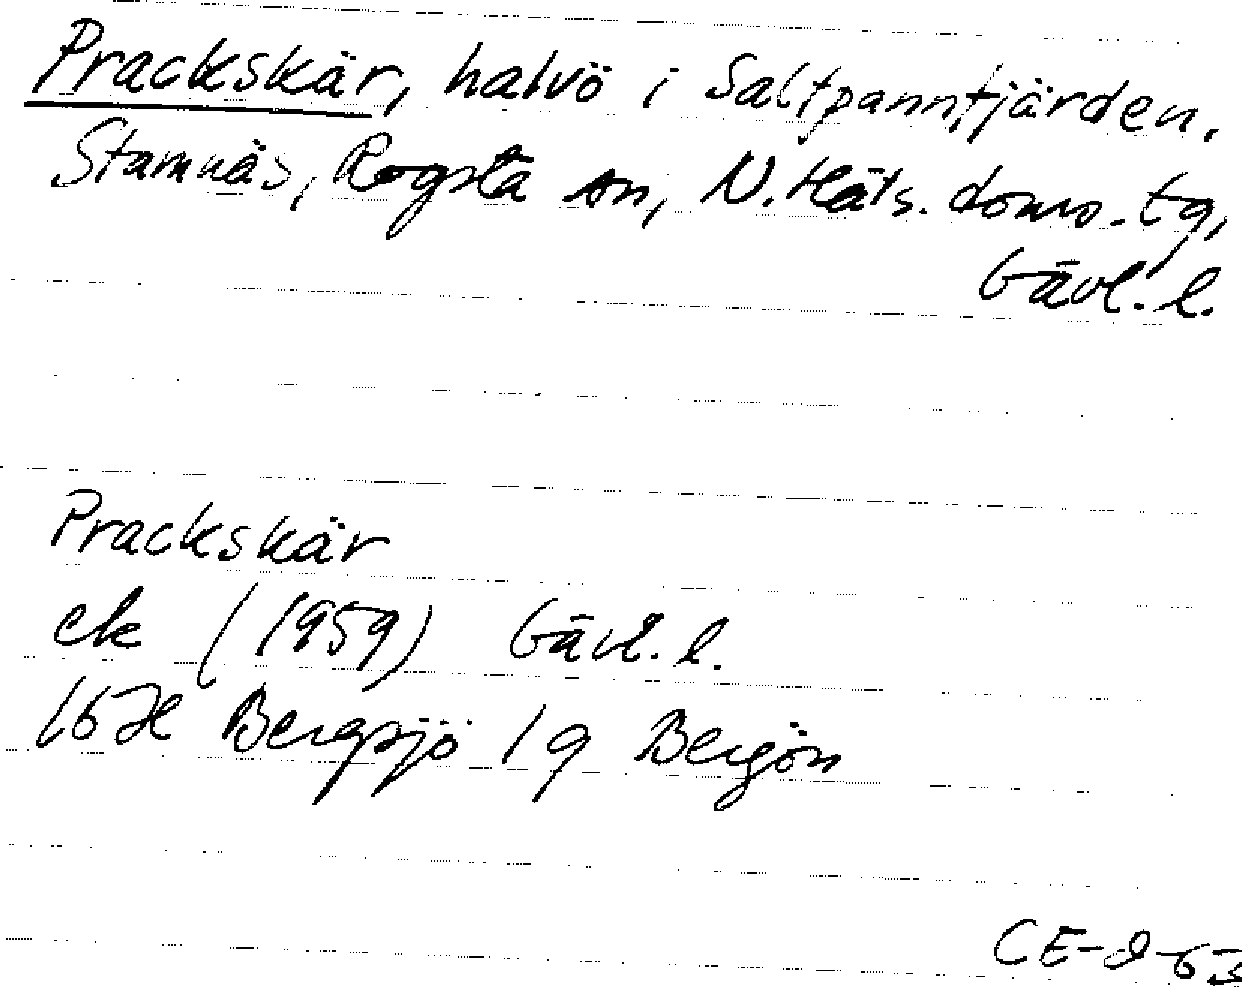 Prackskär, halvö i Saltpannfjärden,
Stamnäs, Rogsta sn, N. Häls. doms. tg,
Gävl. l.
Prackskär
ek (1959) Gävl. l.
16H Bergsjö 1 g Bergön
CE-8-63